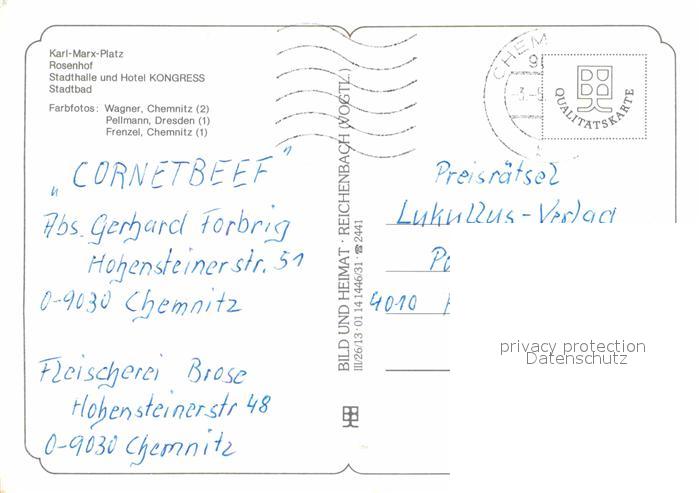 Karl-Marx-Platz
Rosenhof
Stadthalle und Hotel KONGRESS
Stadtbad
Farbfotos: Wagner, Chemnitz (2)
Pellmann, Dresden (1)
Frenzel, Chemnitz (1)
„CORNETBEEF"
Abs. Gerhard Forbrig
Hohensteinerstr. 51
O-9030 Chemnitz
Fleischerei Brose
Hohensteinerstr 48
O-9030 Chemnitz
BILD UND HEIMAT · REICHENBACH (VOGTL.)
III/26/13 · 01 14 1446/31 · ☎ 2441
CHEM
QUALITÄTSKARTE
Preisrätsel
Lukullus-Verlag
4010
privacy protection
Datenschutz